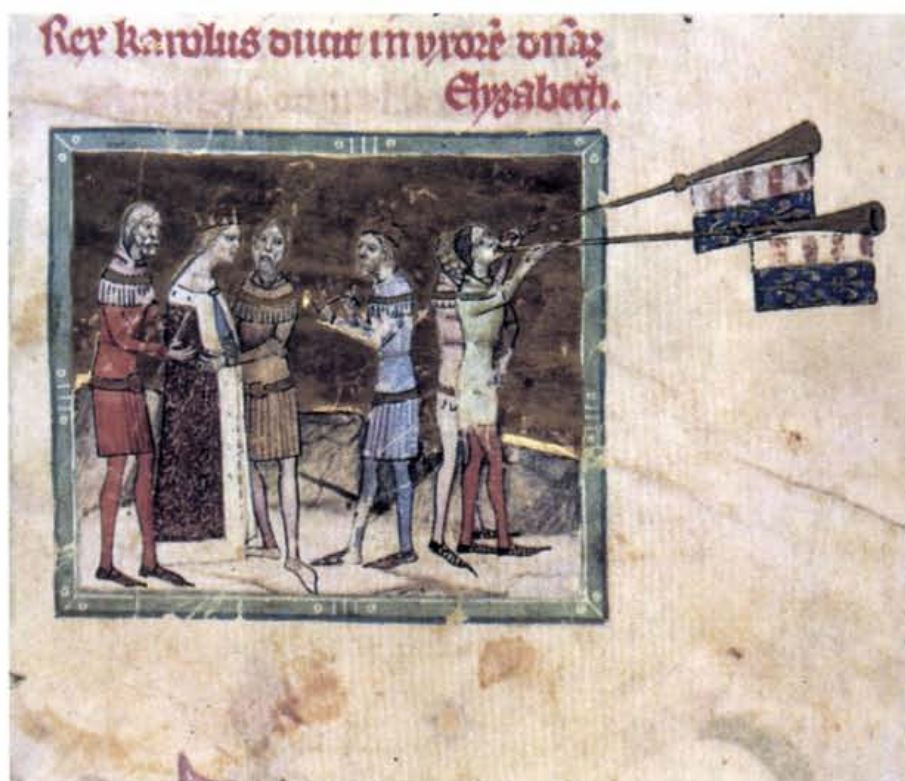 Rex karolus ducit in vxorē dn̄aȝ
Elyzabeth.